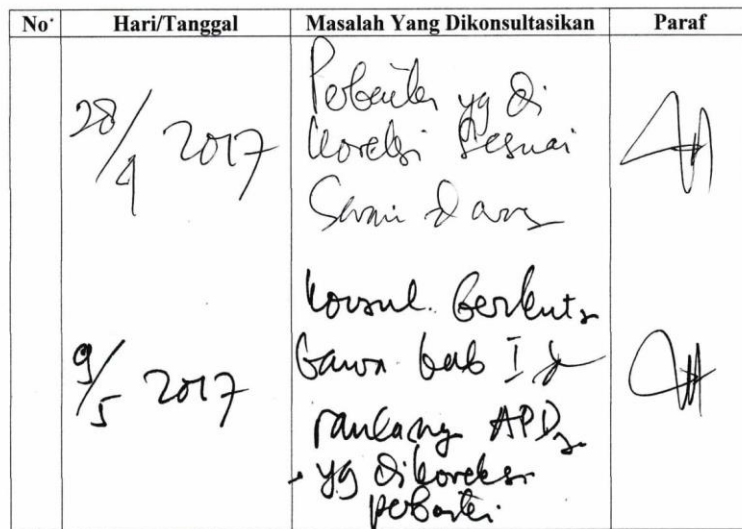 No. Hari/Tanggal Masalah Yang Dikonsultasikan Paraf
28/4 2017
Perbaiki yg di
koreksi sesuai
Saran & arah
9/5 2017
Konsul berikutnya
bawa bab I &
rancang APD
yg dikoreksi
perbaiki